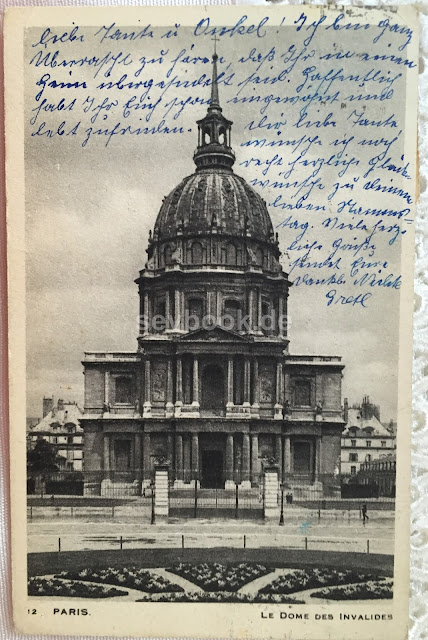 liebe Tante u Onkel! Ich bin ganz
Überrascht zu hören, daß Ihr in einen
Heim übergesiedelt seid. Hoffentlich
habt Ihr Euch schon eingewöhnt und
lebt zufrieden. Dir liebe Tante
wünsche ich noch
recht herzliche Glück-
wünsche zu deinen
lieben Namens-
tag. Viele herz-
liche Grüße
sendet Eure
dankb. Nichte
Gretl
seybook.de
12 PARIS. LE DOME DES INVALIDES